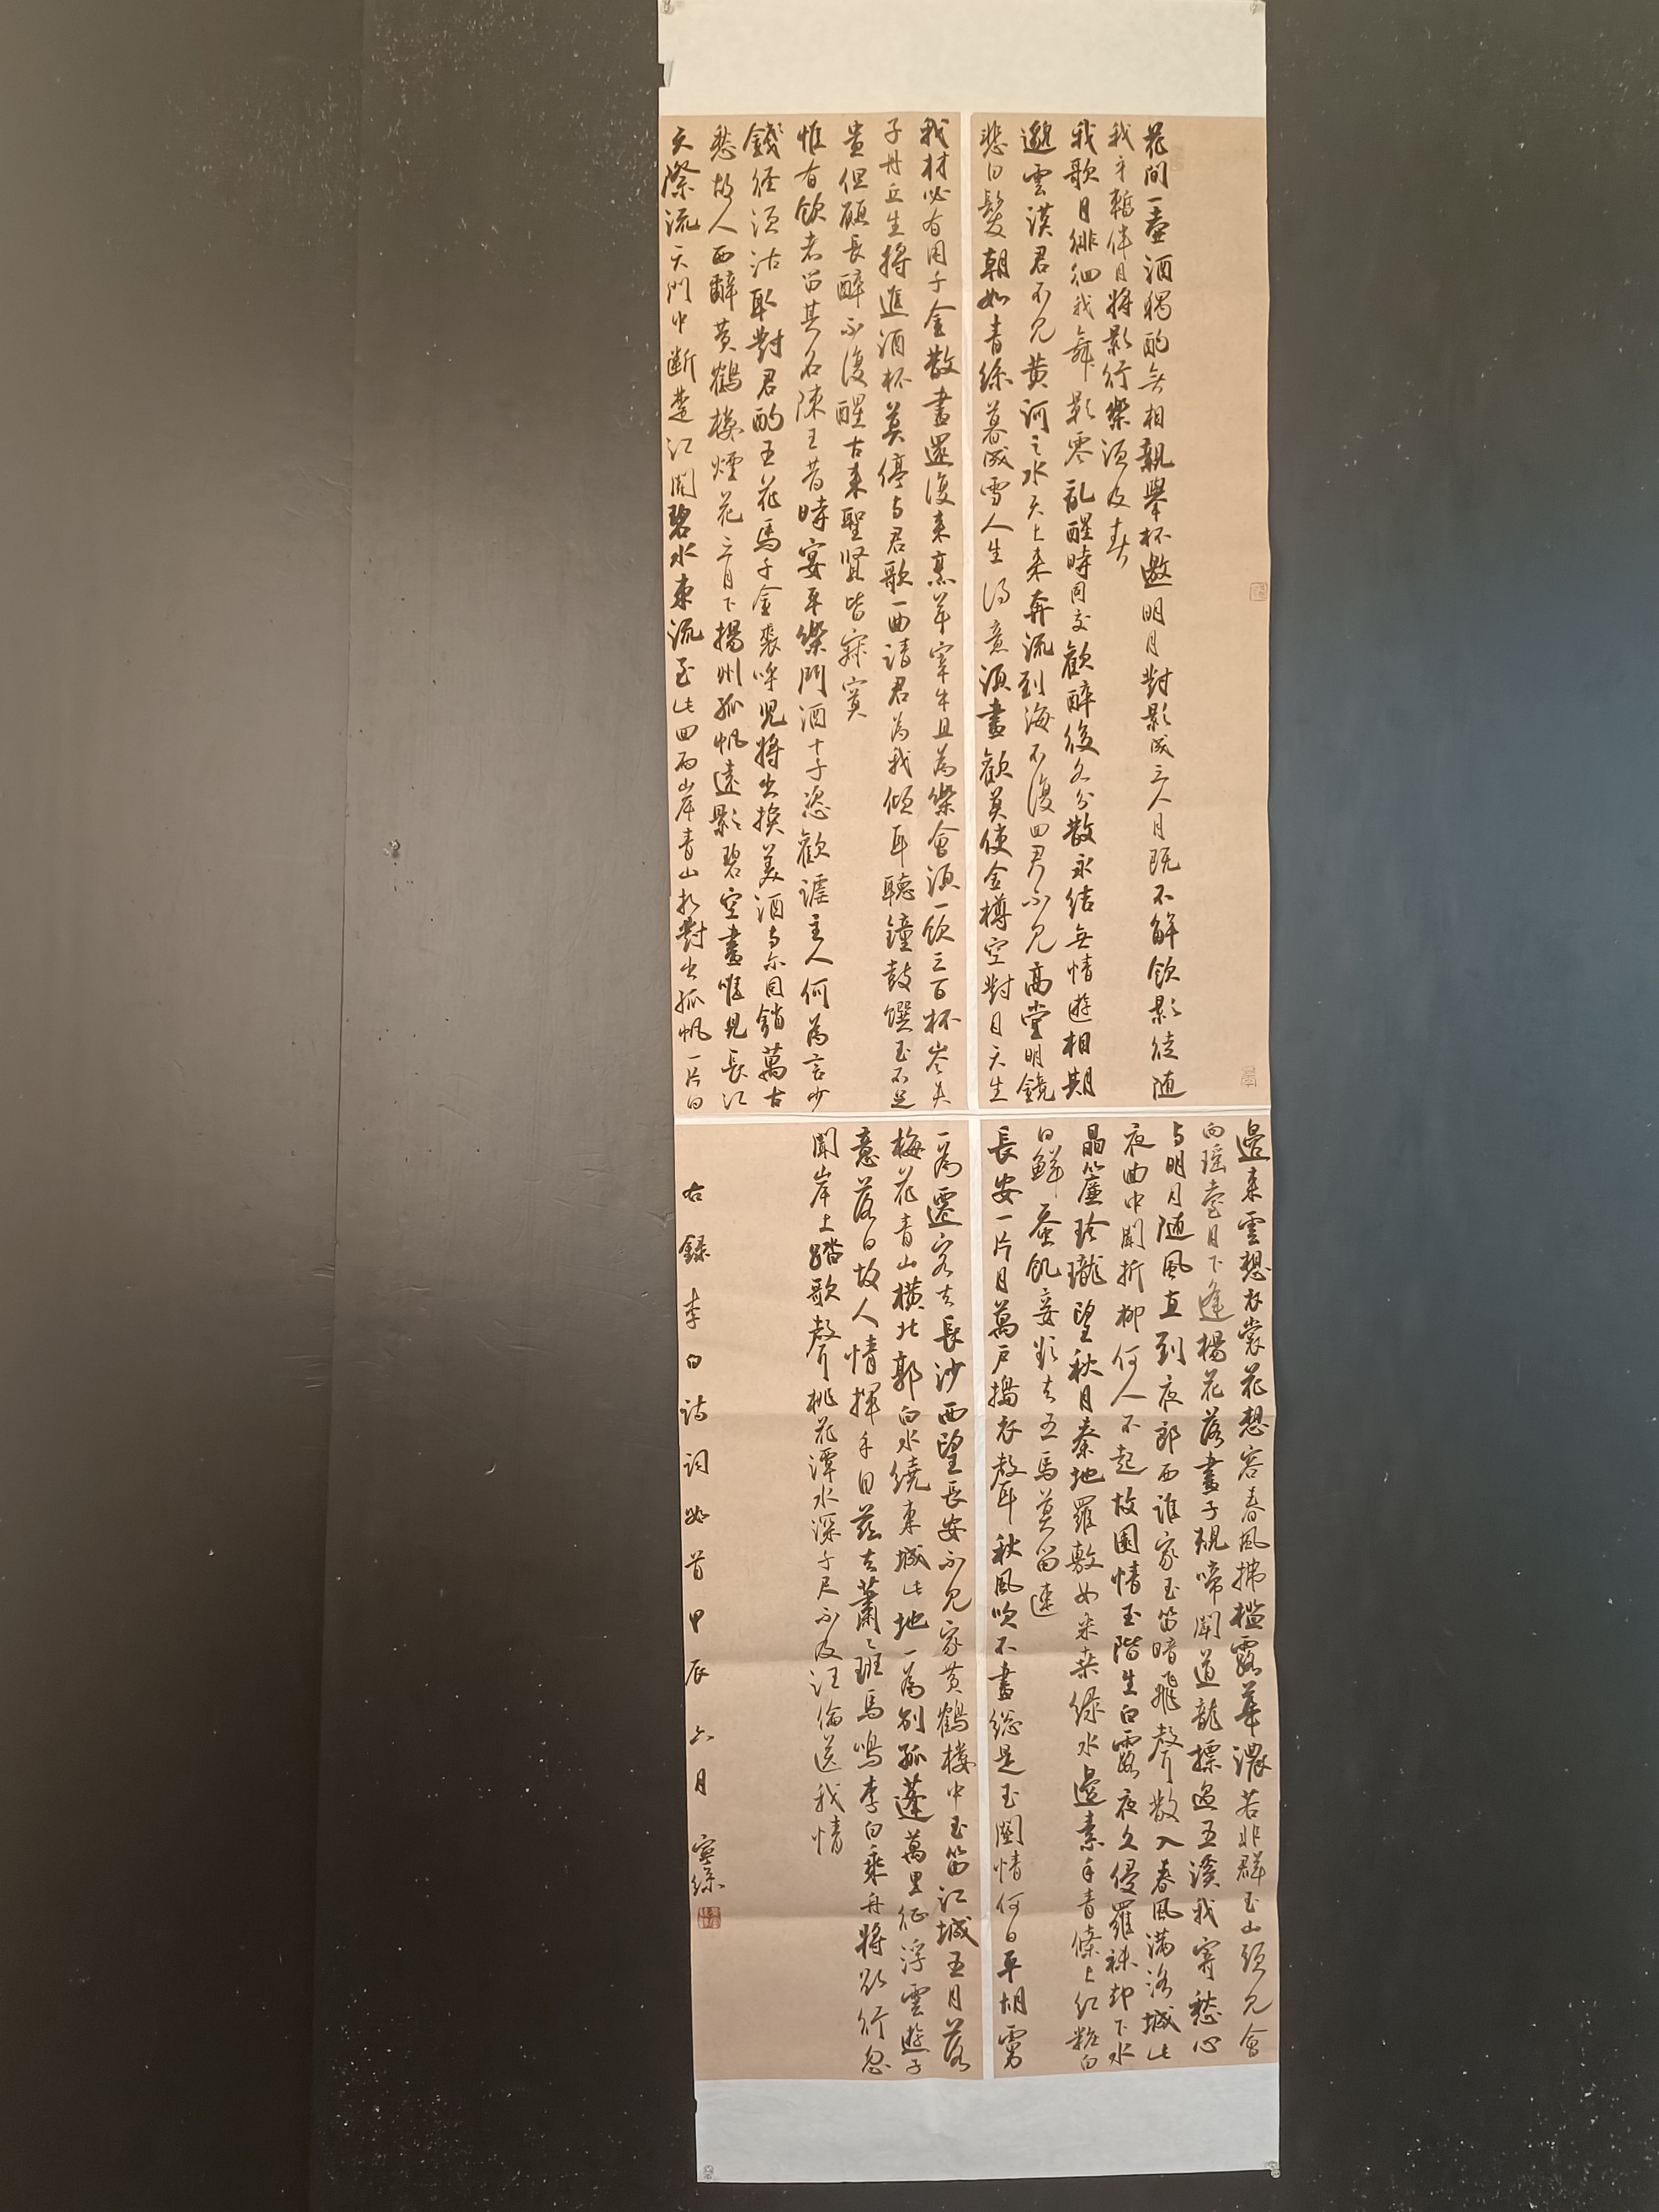 花間一壺酒獨酌無相親舉杯邀明月對影成三人月既不解飲影徒隨
我身暫伴月將影行樂須及春
我歌月徘徊我舞影零亂醒時同交歡醉後各分散永結無情遊相期
邈雲漢君不見黃河之水天上來奔流到海不復回君不見高堂明鏡
悲白髮朝如青絲暮成雪人生得意須盡歡莫使金樽空對月天生
我材必有用千金散盡還復來烹羊宰牛且為樂會須一飲三百杯岑夫
子丹丘生將進酒杯莫停與君歌一曲請君為我傾耳聽鐘鼓饌玉不足
貴但願長醉不復醒古來聖賢皆寂寞
惟有飲者留其名陳王昔時宴平樂鬥酒十千恣歡謔主人何為言少
錢徑須沽取對君酌五花馬千金裘呼兒將出換美酒與爾同銷萬古
愁故人西辭黃鶴樓煙花三月下揚州孤帆遠影碧空盡唯見長江
天際流天門中斷楚江開碧水東流至此回兩岸青山相對出孤帆一片日
邊來雲想衣裳花想容春風拂檻露華濃若非群玉山頭見會
向瑤臺月下逢楊花落盡子規啼聞道龍標過五溪我寄愁心
與明月隨風直到夜郎西誰家玉笛暗飛聲散入春風滿洛城此
夜曲中聞折柳何人不起故園情玉階生白露夜久侵羅襪卻下水
晶簾玲瓏望秋月秦地羅敷女采桑綠水邊素手青條上紅妝白
日鮮蠶飢妾欲去五馬莫留連
長安一片月萬戶擣衣聲秋風吹不盡總是玉關情何日平胡虜
一為遷客去長沙西望長安不見家黃鶴樓中玉笛江城五月落
梅花青山橫北郭白水繞東城此地一為別孤蓬萬里征浮雲遊子
意落日故人情揮手自茲去蕭々班馬鳴李白乘舟將欲行忽
聞岸上踏歌聲桃花潭水深千尺不及汪倫送我情
右錄李白詩詞數首甲辰六月